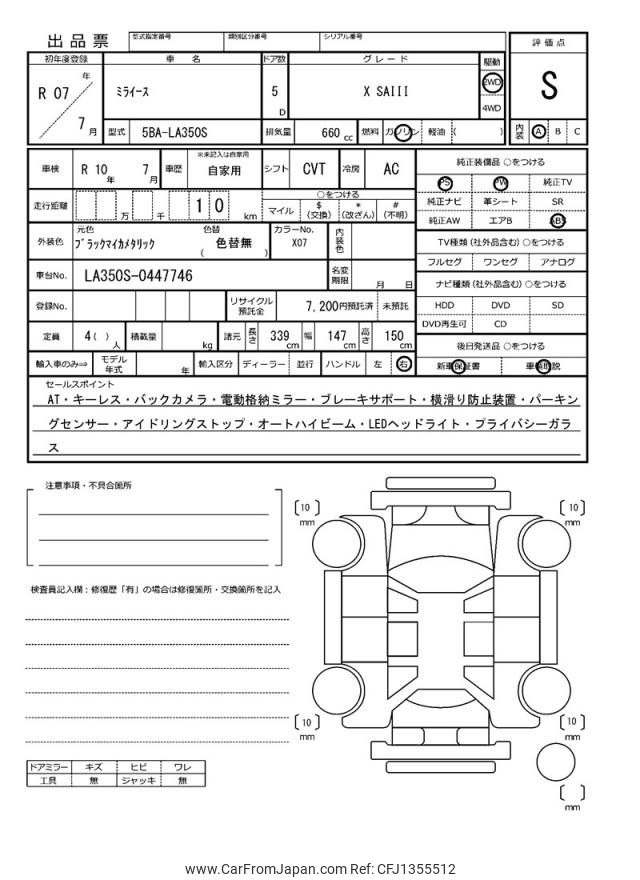 出品票
型式指定番号
類別区分番号
シリアル番号
評価点
初年度登録
車 名
ドア数
グレード
駆動
R 07
年
7
月
ミライース
5
D
X SAIII
2WD
4WD
S
型式
5BA-LA350S
排気量
660 cc
燃料
ガソリン
軽油
(
)
内装
A
B
C
車検
R 10
年
7
月
車歴
※未記入は自家用
自家用
シフト
CVT
冷房
AC
純正装備品 ○をつける
PS
PW
純正TV
純正ナビ
革シート
SR
純正AW
エアB
ABS
走行距離
万
千
1 0
km
○をつける
マイル
$
(交換)
*
(改ざん)
#
(不明)
外装色
元色
ブラックマイカメタリック
色替
色替無
(
)
カラーNo.
X07
内装色
TV種類 (社外品含む) ○をつける
フルセグ
ワンセグ
アナログ
車台No.
LA350S-0447746
名変期限
月
日
ナビ種類 (社外品含む) ○をつける
HDD
DVD
SD
DVD再生可
CD
登録No.
リサイクル預託金
7,200円預託済
未預託
定員
4( )
人
積載量
kg
諸元
長さ
339
cm
幅
147
cm
高さ
150
cm
後日発送品 ○をつける
新車保証書
車輌取説
輸入車のみ⇒
モデル年式
年
輸入区分
ディーラー
並行
ハンドル
左
右
セールスポイント
AT・キーレス・バックカメラ・電動格納ミラー・ブレーキサポート・横滑り防止装置・パーキン
グセンサー・アイドリングストップ・オートハイビーム・LEDヘッドライト・プライバシーガラ
ス
注意事項・不具合箇所
検査員記入欄：修復歴「有」の場合は修復箇所・交換箇所を記入
[10]
mm
[10]
mm
[10]
mm
[10]
mm
[ ]
mm
ドアミラー
キズ
ヒビ
ワレ
工具
無
ジャッキ
無
www.CarFromJapan.com Ref: CFJ1355512